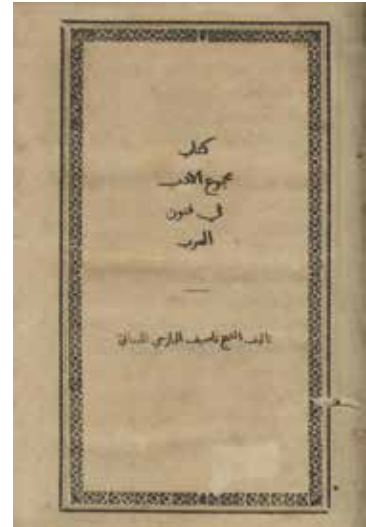 كتاب
مجموع الادب
في فنون
العرب
تاليف الشيخ ناصيف اليازجي اللبناني